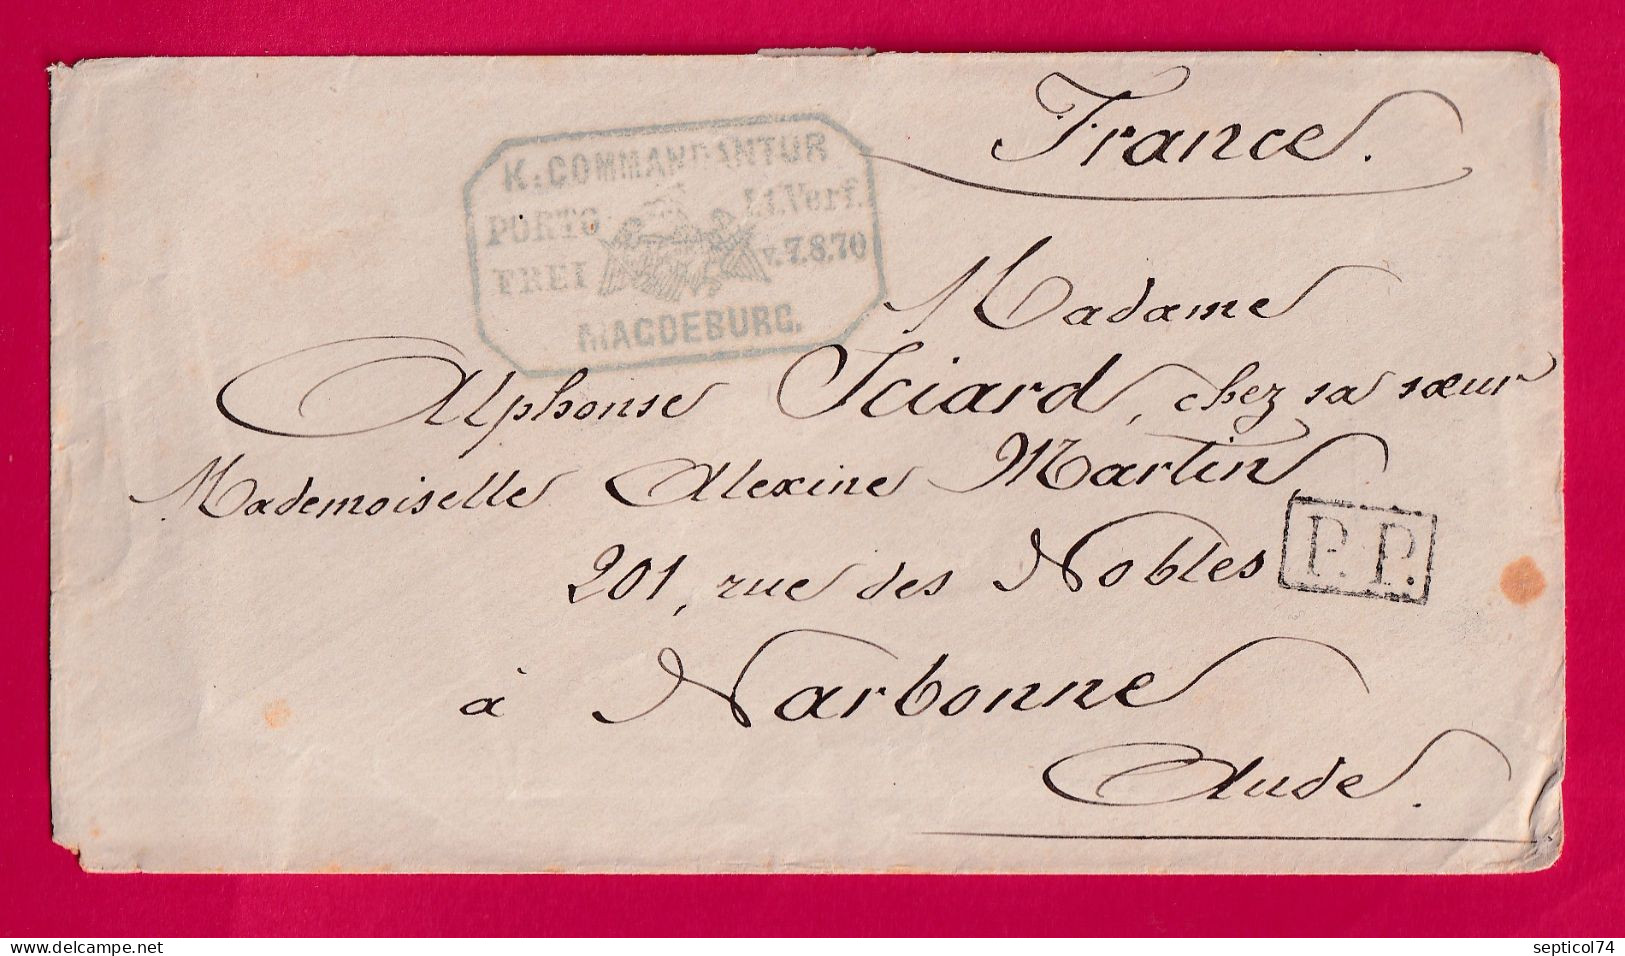 France.
K. COMMANDANTUR
PORTO Lt. Verf.
FREI v. 7.8.70
MAGDEBURG.
Madame
Alphonse Iciard, chez sa sœur
Mademoiselle Alexine Martin,
201, rue des Nobles
P.P.
à Narbonne
Aude.
septicol74